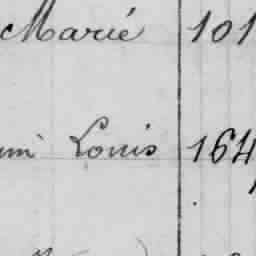 Marié 101
Louis 164